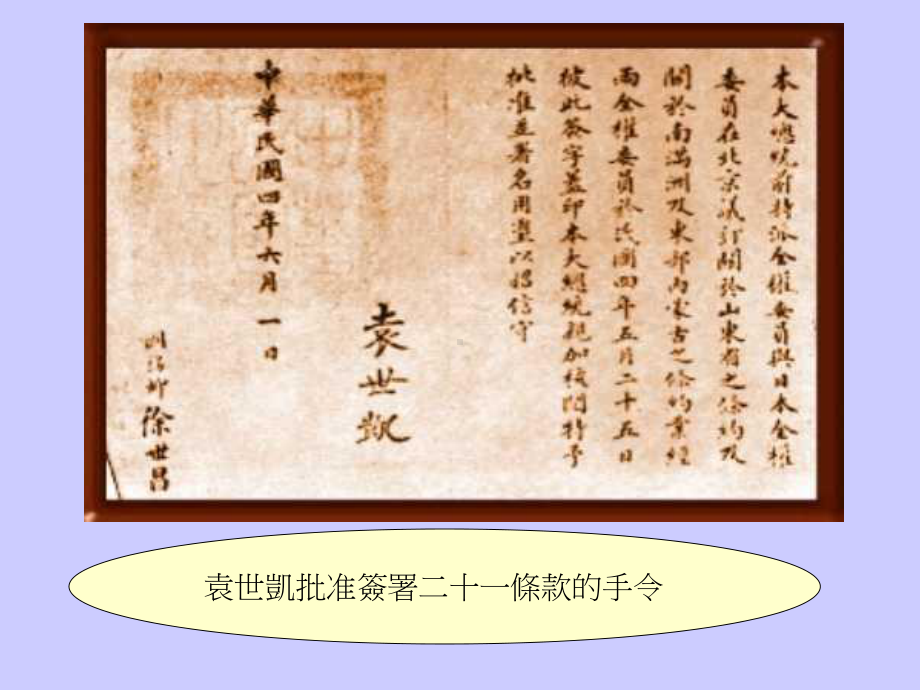 本大總統前特派全權委員與日本全權
委員在北京議訂關於山東省之條約及
關於南滿洲及東部內蒙古之條約業經
兩全權委員於民國四年五月二十五日
彼此簽字蓋印本大總統親加核閱特予
批准並署名用璽以昭信守
袁世凱
中華民國四年六月一日
國務卿徐世昌
袁世凱批准簽署二十一條款的手令